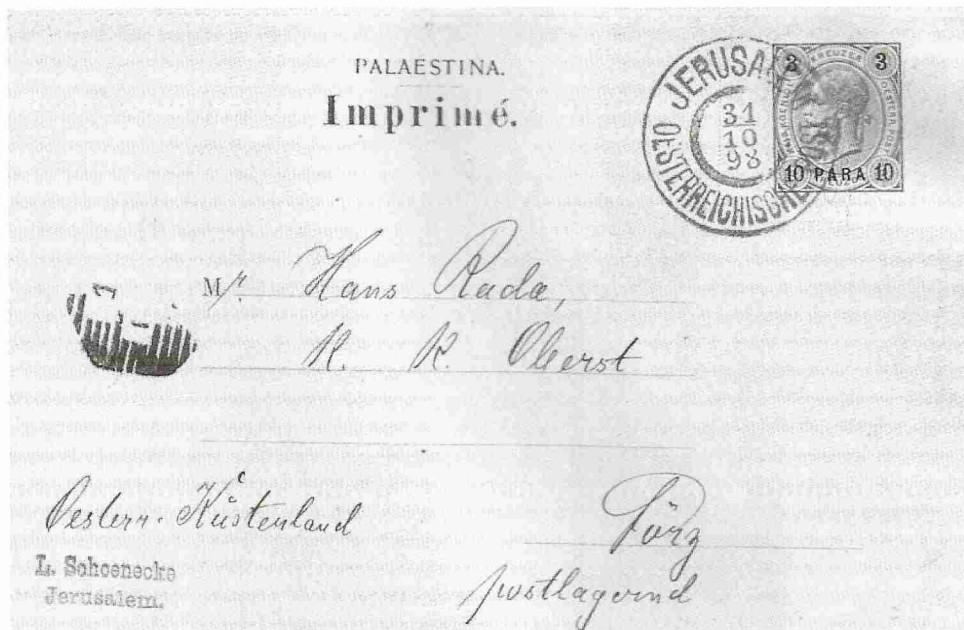 PALAESTINA.
Imprimé.
JERUSA
OESTERREICHISCHE
31
10
98
3 KREUZER 3
10 PARA 10
Mr Hans Rada,
K. K. Oberst
Oesterr. Küstenland
Görz
postlagernd
L. Schoenecke
Jerusalem.